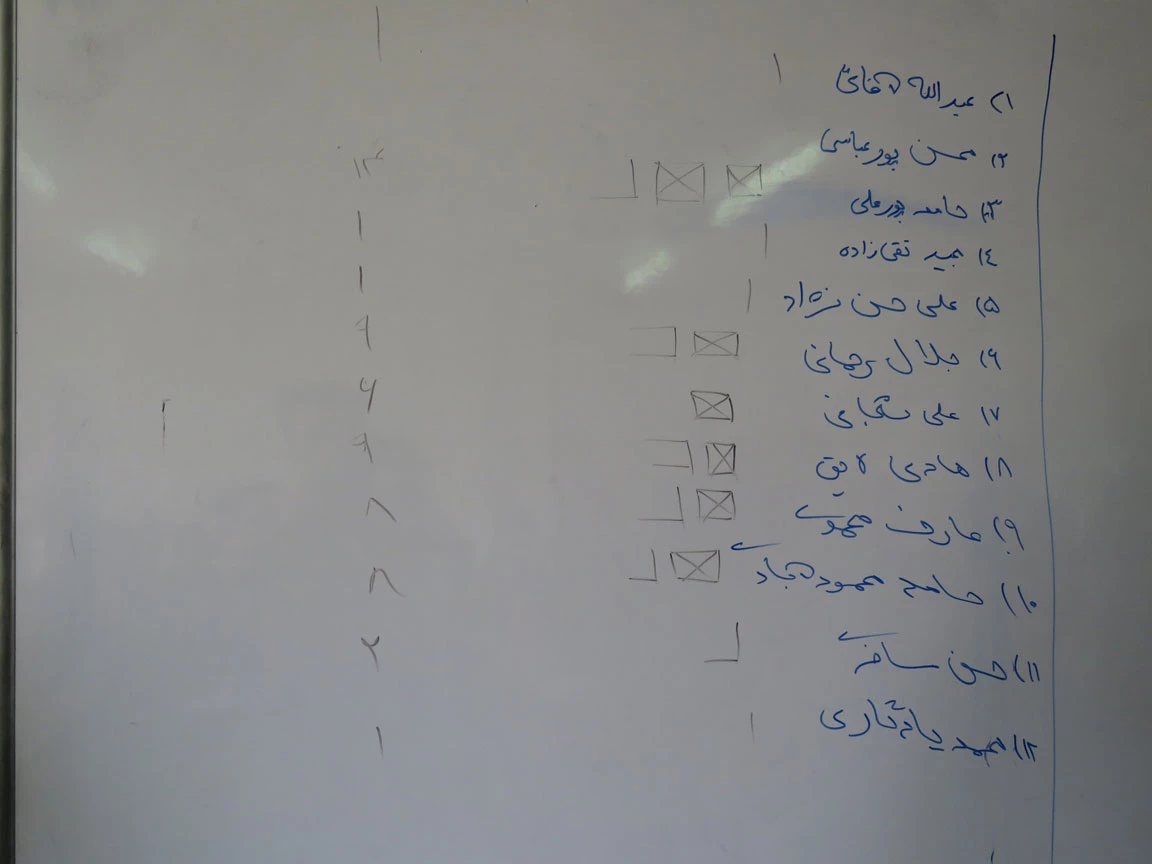 ۱) عبدالله آقائی ۱
۲) محسن پورعباسی
۳) حامد پورعلی ۱۳
۴) مجید تقی‌زاده ۱
۵) علی حسن نژاد ۱
۶) جلال رحمانی ۹
۷) علی شجاعی ۶
۸) هادی لایق ۹
۹) عارف محمودی ۸
۱۰) حامد محمودآبادی ۸
۱۱) حسن ۲
۱۲) محمد یادگاری ۱